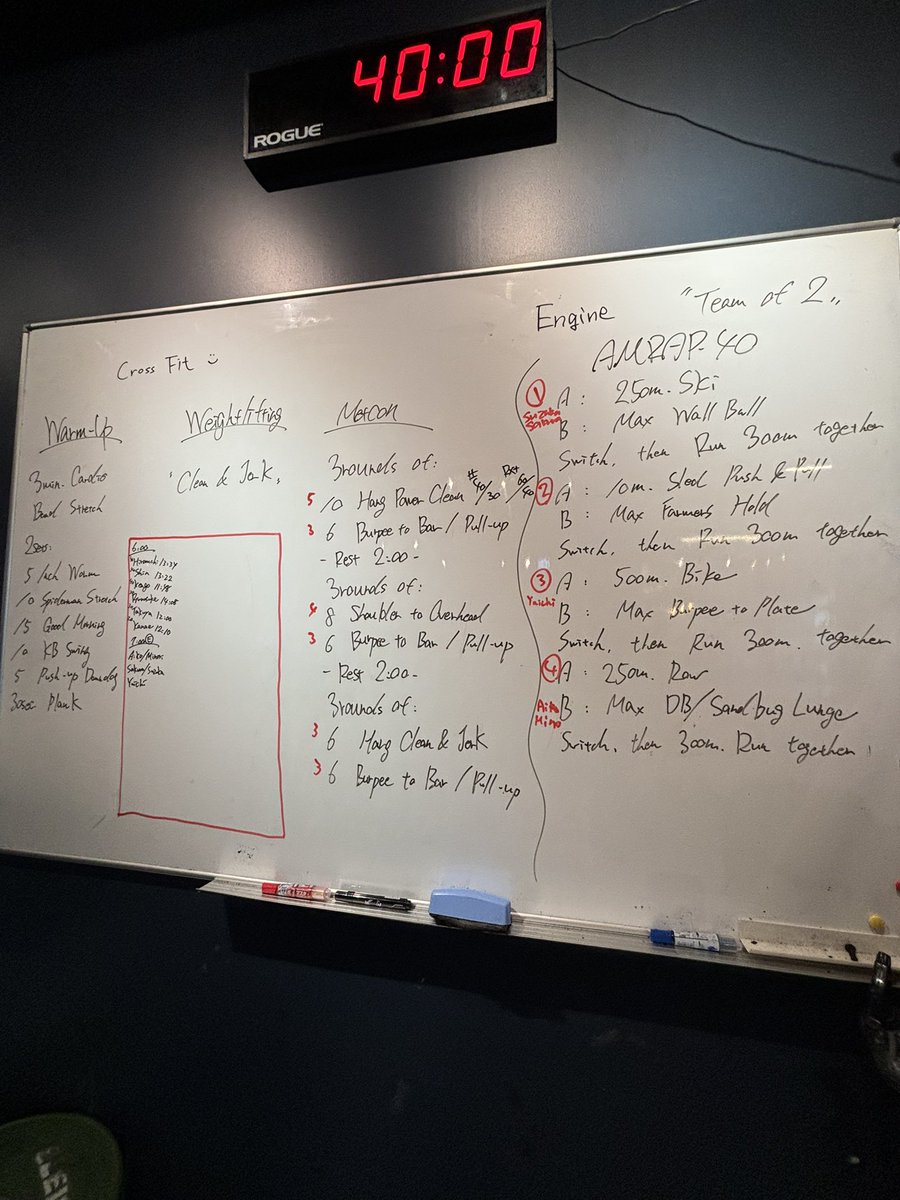 40:00
ROGUE
Cross Fit
Warm-Up
3min. Cardio
Band Stretch
2sets:
5 Inch Worm
10 Spiderman Stretch
15 Good Morning
10 KB Swing
5 Push-up Downdog
30sec Plank
Weightlifting
"Clean & Jerk"
6:00
Shin 13:22
7:00
Yuichi
Metcon
3rounds of:
5 10 Hang Power Clean 40/30 60/40
3 6 Burpee to Bar / Pull-up
- Rest 2:00 -
3rounds of:
4 8 Shoulder to Overhead
3 6 Burpee to Bar / Pull-up
- Rest 2:00 -
3rounds of:
3 6 Hang Clean & Jerk
3 6 Burpee to Bar / Pull-up
Engine "Team of 2"
AMRAP-40
① A: 250m. Ski
B: Max Wall Ball
Switch, then Run 300m together
② A: 10m. Sled Push & Pull
B: Max Farmers Hold
Switch, then Run 300m together
③ A: 500m. Bike
Yuichi
B: Max Burpee to Plate
Switch, then Run 300m. together
④ A: 250m. Row
Aiko
Mino
B: Max DB/Sandbag Lunge
Switch, then 300m. Run together